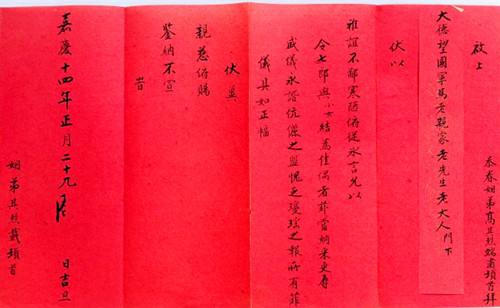 忝眷姻弟高其烈端肅頓首拜
啟上
大德望國軍馬老親家老先生老大人門下
伏以
雅誼不鄙寒陋俯從氷言允以
令七郎與小女結為佳偶者菲當納采更辱
盛儀永諧伉儷之盟愧乏瓊瑤之報所有菲
儀具如正幅
伏冀
親慈俯賜
鑒納不宣
旹
嘉慶十四年正月二十九 日吉旦
姻弟其烈載頓首